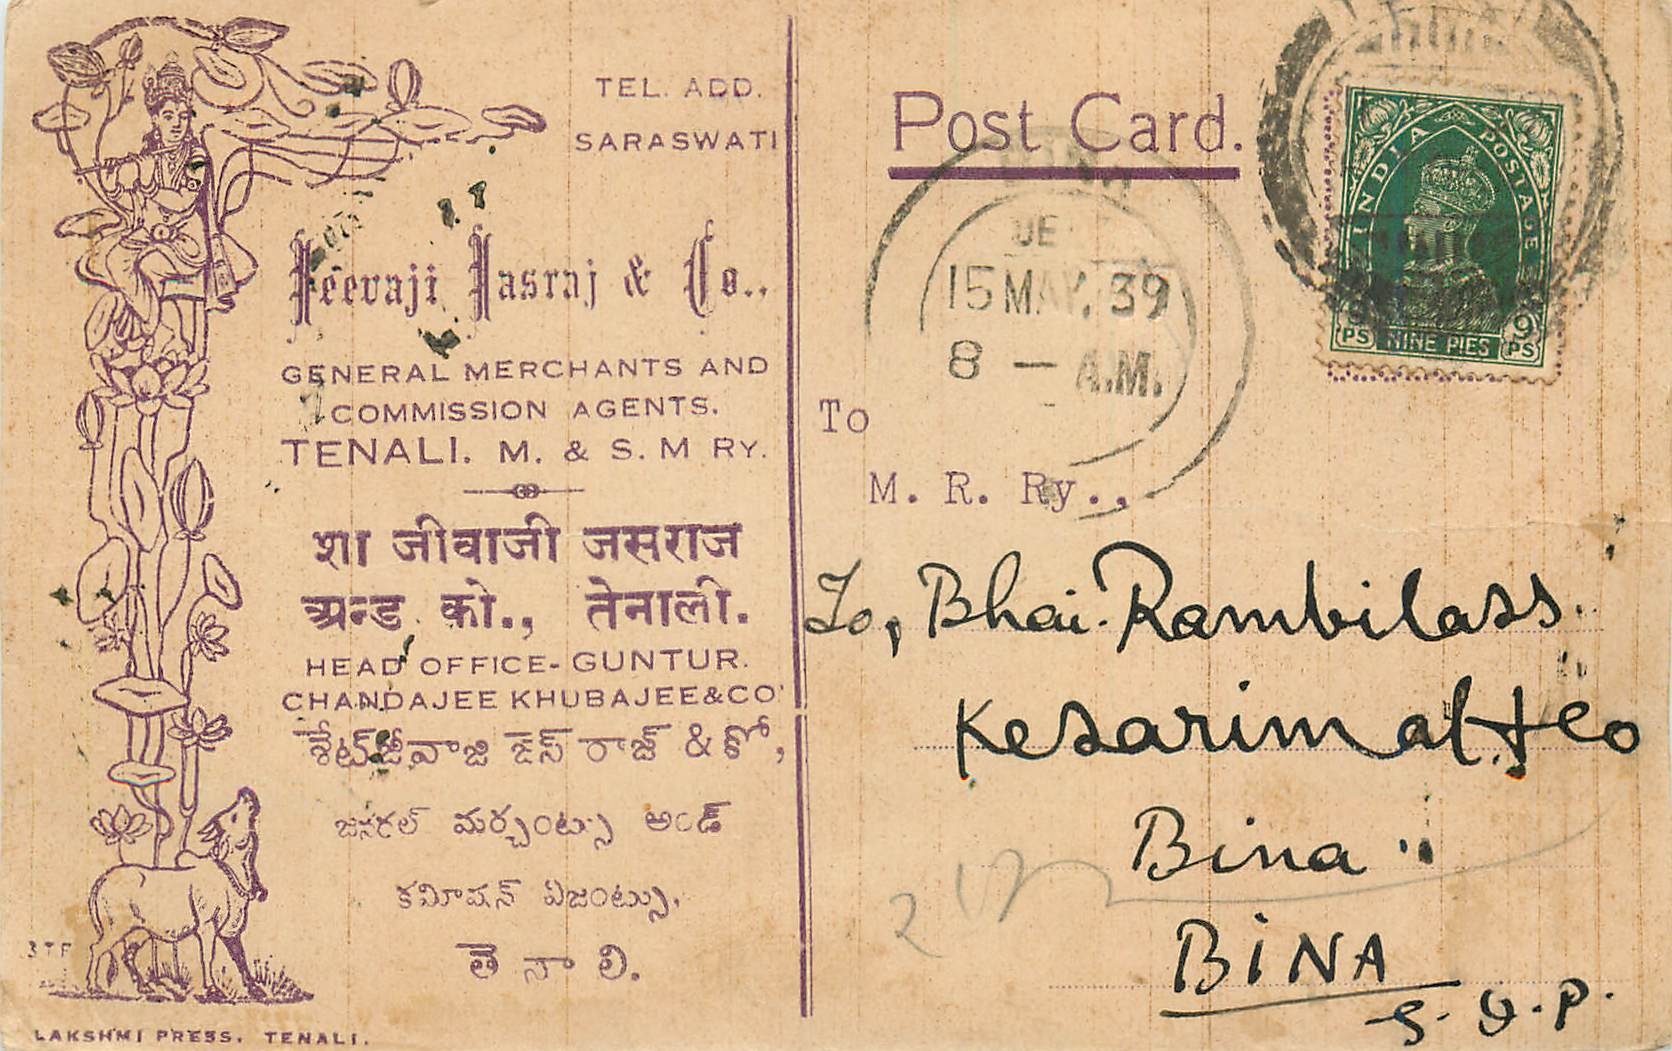 TEL. ADD.
SARASWATI
Jeevaji Jasraj & Co.,
GENERAL MERCHANTS AND
COMMISSION AGENTS.
TENALI. M. & S. M RY.
शा जीवाजी जसराज
अन्ड को., तेनाली.
HEAD OFFICE- GUNTUR.
CHANDAJEE KHUBAJEE&CO'
శేట్ జీవాజి జెస్ రాజ్ & కో,
జనరల్ మర్చంట్సు అండ్
కమీషన్ ఏజంట్సు,
తె నా లి.
LAKSHMI PRESS. TENALI.
Post Card.
INDIA POSTAGE
9 PS NINE PIES 9 PS
15 MAY. 39
8 — A.M.
To
M. R. Ry.,
To, Bhai. Rambilass.
Kesarimal & Co
Bina
BINA